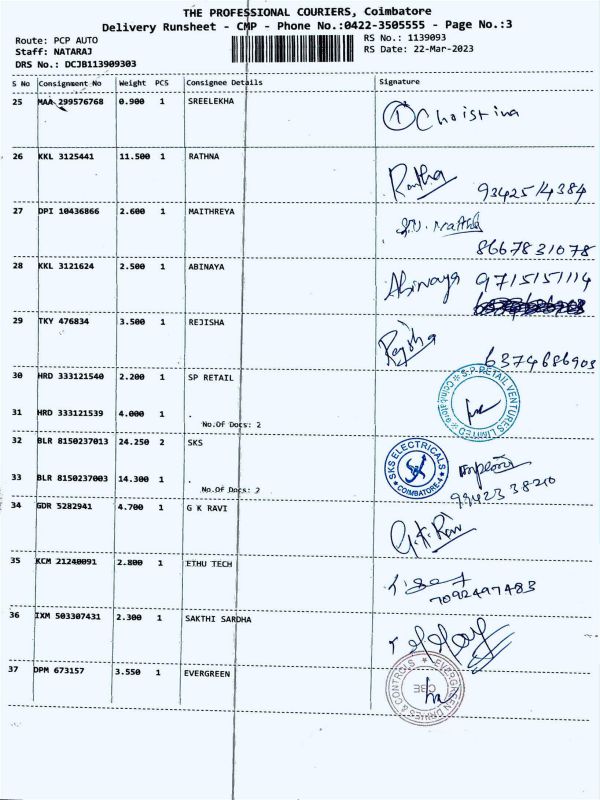 THE PROFESSIONAL COURIERS, Coimbatore
Delivery Runsheet - CMP - Phone No.:0422-3505555 - Page No.:3
Route: PCP AUTO
Staff: NATARAJ
DRS No.: DCJB113909303
RS No.: 1139093
RS Date: 22-Mar-2023
S No Consignment No Weight PCS Consignee Details Signature
25 MAA 299576768 0.900 1 SREELEKHA
① Christina
26 KKL 3125441 11.500 1 RATHNA
Rathna 9342514384
27 DPI 10436866 2.600 1 MAITHREYA
8667831078
28 KKL 3121624 2.500 1 ABINAYA
Abinaya 9715157114
29 TKY 476834 3.500 1 REJISHA
Rejisha 6374686903
30 HRD 333121540 2.200 1 SP RETAIL
S-P-RETAIL VENTURES LIMITED
31 HRD 333121539 4.000 1 .
No.Of Docs: 2
32 BLR 8150237013 24.250 2 SKS
SKS ELECTRICALS
COIMBATORE-4
99423 38210
33 BLR 8150237003 14.300 1 .
No.Of Docs: 2
34 GDR 5282941 4.700 1 G K RAVI
G.K. Ravi
35 KCM 21240091 2.800 1 ETHU TECH
7092497483
36 IXM 503307431 2.300 1 SAKTHI SARDHA
37 DPM 673157 3.550 1 EVERGREEN
EVERGREEN DRIVES & CONTROLS
CBE